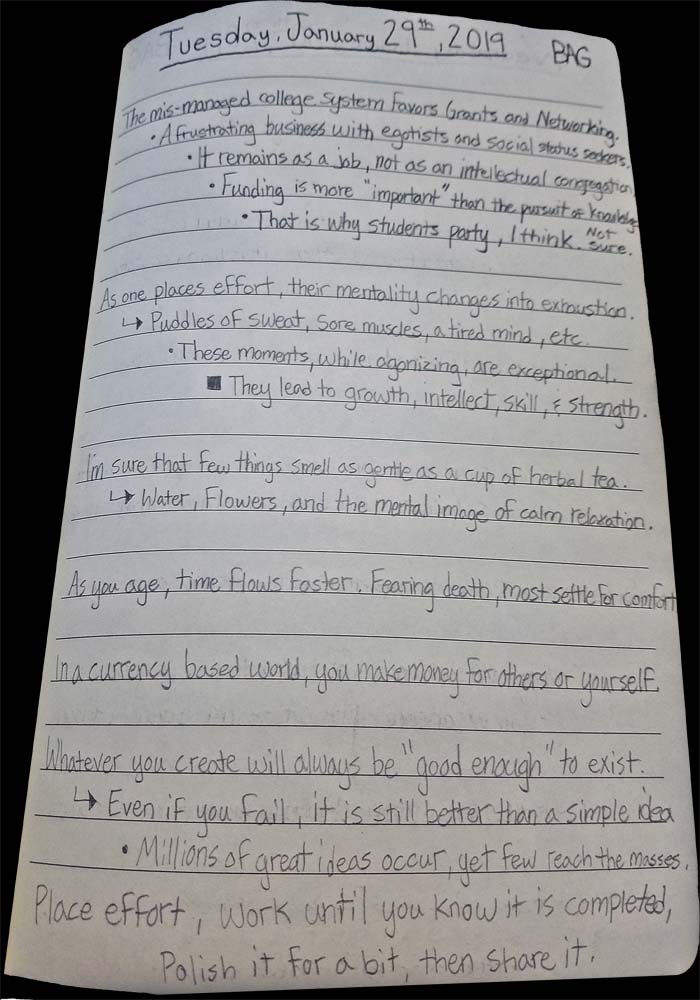 Tuesday, January 29th, 2019 BAG
The mis-managed college system favors Grants and Networking.
• A frustrating business with egotists and social status seekers.
• It remains as a job, not as an intellectual congregation.
• Funding is more "important" than the pursuit of knowledge
• That is why students party, I think. Not sure.
As one places effort, their mentality changes into exhaustion.
↳ Puddles of sweat, sore muscles, a tired mind, etc.
• These moments, while agonizing, are exceptional.
■ They lead to growth, intellect, skill, & strength.
I'm sure that few things smell as gentle as a cup of herbal tea.
↳ Water, Flowers, and the mental image of calm relaxation.
As you age, time flows faster. Fearing death, most settle for comfort
In a currency based world, you make money for others or yourself.
Whatever you create will always be "good enough" to exist.
↳ Even if you fail, it is still better than a simple idea
• Millions of great ideas occur, yet few reach the masses.
Place effort, work until you know it is completed,
Polish it for a bit, then share it.